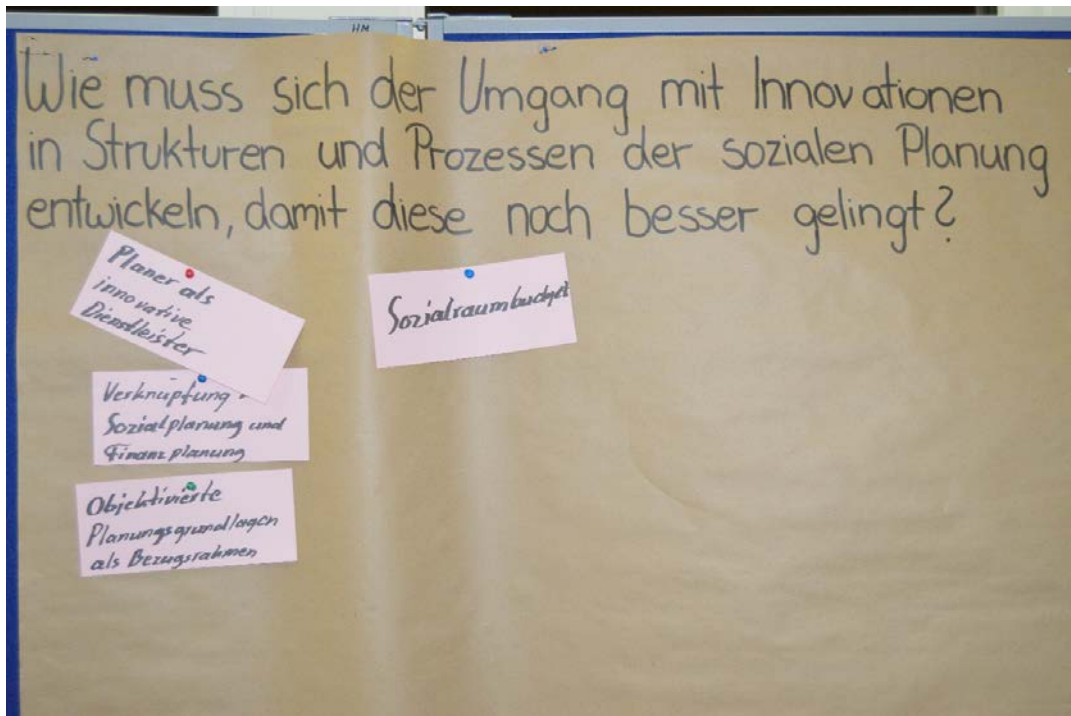 HM
Wie muss sich der Umgang mit Innovationen
in Strukturen und Prozessen der sozialen Planung
entwickeln, damit diese noch besser gelingt?
Planer als
innovative
Dienstleister
Verknüpfung
Sozialplanung und
Finanzplanung
Objektivierte
Planungsgrundlagen
als Bezugsrahmen
Sozialraumbudget